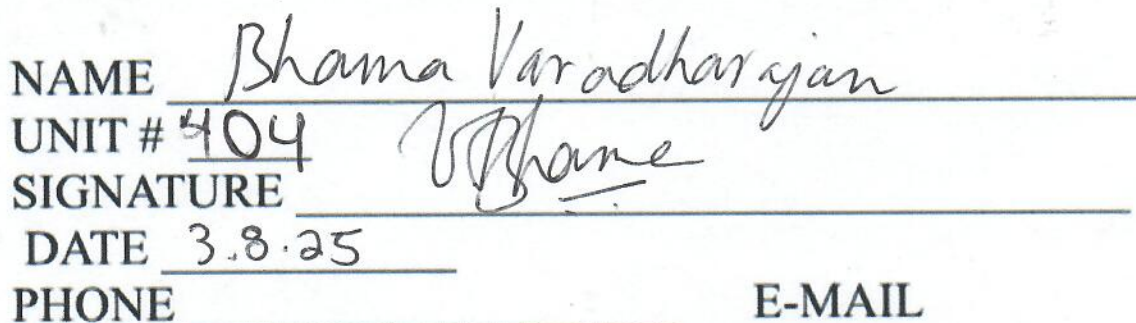 NAME Bhama Varadharajan
UNIT # 404
SIGNATURE V Bhama
DATE 3.8.25
PHONE E-MAIL